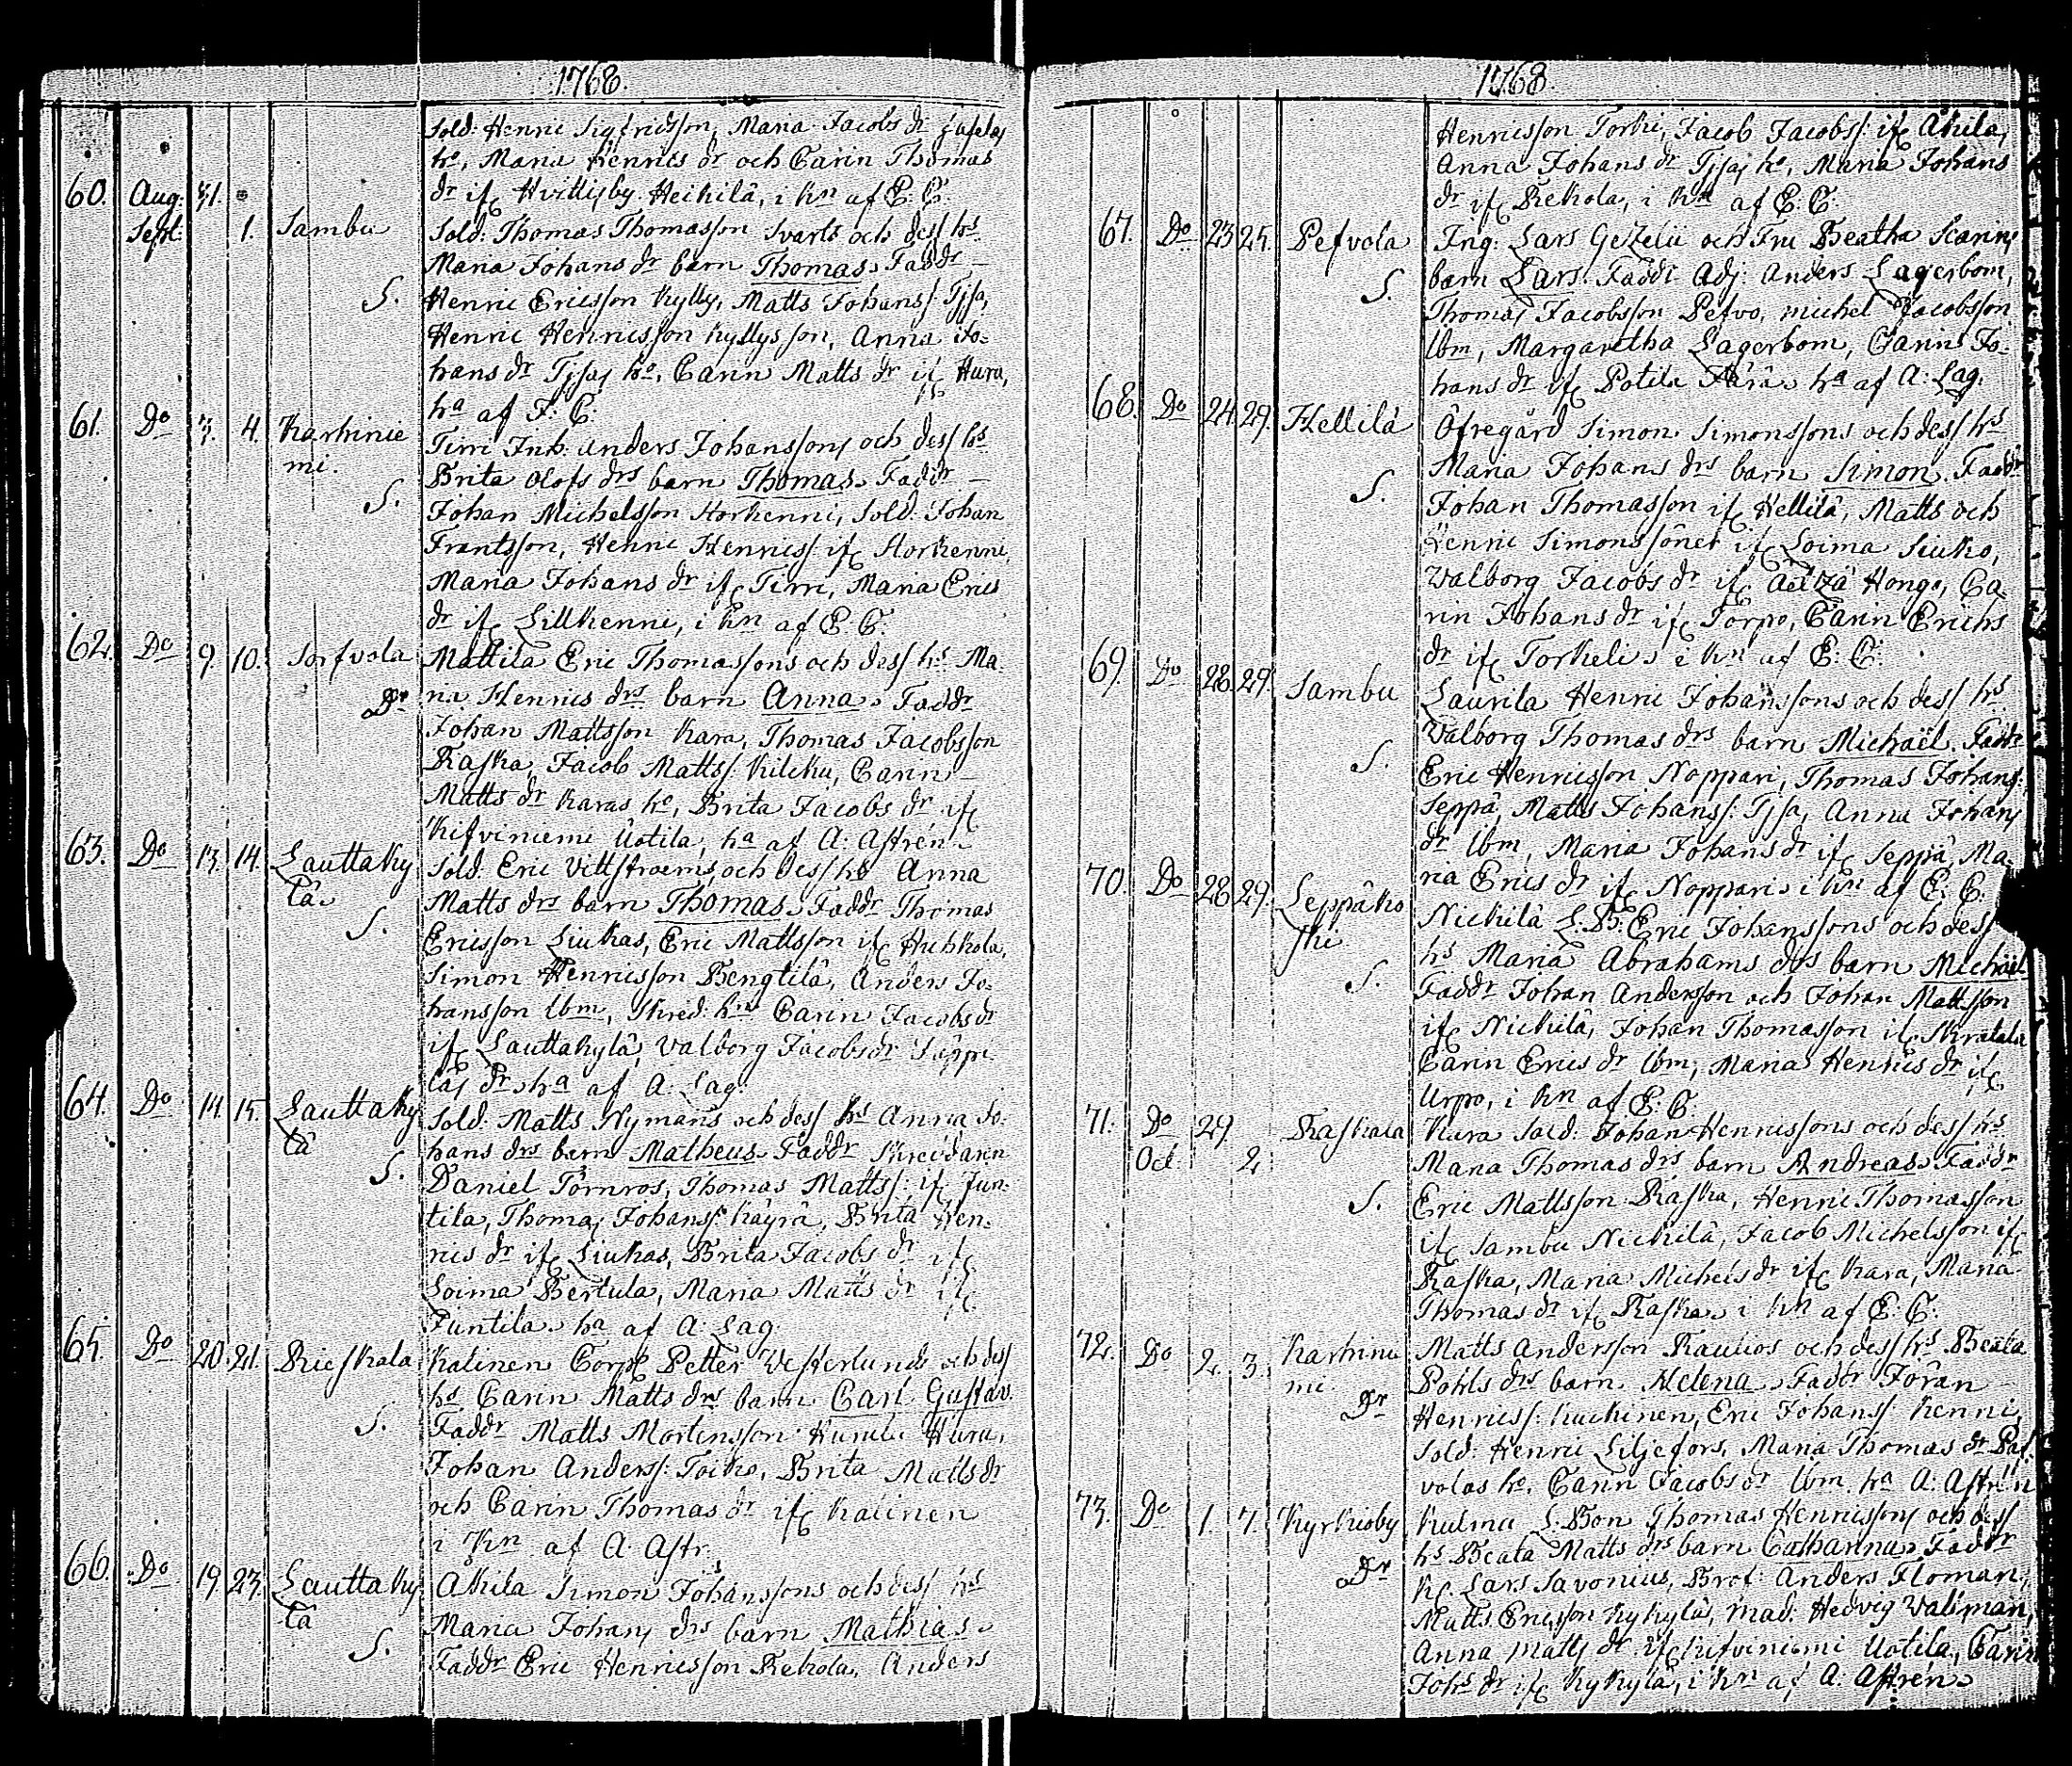 1768.
Sold: Henric Sigfridsson, Maria Jacobs dr
ho, Maria Henrics dr och Carin Thomas
60. Aug: 31. dr ifr Hvittisby Heikilä, i kn af E: C:
Sept: 1. Sambu Sold: Thomas Thomasson Svarts och dess hs
Maria Johans dr barn Thomas. Faddr
S. Henric Ericsson Kylly, Matts Johans: Tjsa,
Henric Henricsson Kyllys son, Anna Jo-
hans dr Tjsas ho, Carin Matts dr if Hura,
ha af E: C:
61. Do 3. 4. Karhinie
mi. Tirri Inh: Anders Johanssons och dess hs
Brita Olofs drs barn Thomas. Faddr
S. Johan Michelsson Storkenni, Sold: Johan
Frantsson, Henric Henrics: if Storkenni,
Maria Johans dr if Tirri, Maria Erics
dr if Lillkenni, i kn af E: C:
62. Do 9. 10. Sorfvola Mattila Eric Thomassons och dess hs Ma-
Dr ria Henrics drs barn Anna. Faddr
Johan Mattsson Kara, Thomas Jacobsson
Raska, Jacob Matts: Kilcku, Carin
Matts dr Karas ho, Brita Jacobs dr if
Kifviniemi Uotila, ha af A: Astrén.
63. Do 13. 14. Lauttaky
lä. Sold: Eric Vittstroems och dess hs Anna
Matts drs barn Thomas. Faddr Thomas
S. Ericsson Liukas, Eric Mattsson if Huhkola,
Simon Henricsson Bengtilä, Anders Jo-
hansson Ibm, Skred: hn Carin Jacobs dr
if Lauttakylä, Valborg Jacobs dr Säppi-
läs dr ha af A. Lag:
64. Do 14. 15. Lauttaky
lä Sold: Matts Nymans och dess hs Anna Jo-
hans drs barn Matheus. Faddr Skreddaren
S. Daniel Törnros, Thomas Matts: if Jun-
tila, Thomas Johans: Käyrä, Brita Hen-
rics dr if Liukas, Brita Jacobs dr if
Loima Bertula, Maria Matts dr if
Juntila. ha af A. Lag:
65. Do 20 21. Rieskala Kalinen Corpl Petter Westerlunds och dess
hs Carin Matts drs barn Carl Gustav.
S. Faddr Matts Mortensson Humla Hura,
Johan Anders: Toiko, Brita Matts dr
och Carin Thomas dr if Kalinen
i kn af A. Astr:
66. Do 19 23. Lauttaky
lä Akila Simon Johanssons och dess hs
Maria Johans drs barn Mathias.
S. Faddr Eric Henricsson Rekola, Anders
1768.
Henricsson Torki, Jacob Jacobs: if Akila,
Anna Johans dr Tjsas ho, Maria Johans
dr if Rekola, i kn af E: C:
67. Do 23 25. Pefvola Ing: Lars Gezelii och Fru Beatha Scarins
S. barn Lars. Faddr Adj: Anders Lagerbom,
Thomas Jacobsson Pefvo, Michel Jacobsson
Ibm, Margaretha Lagerbom, Carin Jo-
hans dr if Potila ha af A: Lag.
68. Do 24. 29. Hellilä Öfregård Simon Simonssons och dess hs
Maria Johans drs barn Simon. Faddr
S. Johan Thomasson if Hellilä, Matts och
Henric Simonssöner if Loima Siuko,
Valborg Jacobs dr if Hongo, Ca-
rin Johans dr if Torpo, Carin Erichs
dr if Torkeli. i kn af E: C:
69. Do 28. 29. Sambu Laurila Henric Johanssons och dess hs
Valborg Thomas drs barn Michaël. Faddr
S. Eric Henricsson Noppari, Thomas Johans:
Seppä, Matts Johans: Tjsa, Anna Johans
dr Ibm, Maria Johans dr if Seppä, Ma-
ria Erics dr if Nopparis i kn af E: C:
70. Do 28 29. Leppäko
ski Nickilä L. B: Eric Johanssons och dess
hs Maria Abrahams drs barn Michaël
S. Faddr Johan Andersson och Johan Mattsson
if Nickilä, Johan Thomasson if Skratala
Carin Erics dr Ibm, Maria Henrics dr if
Urpo, i kn af E: C:
71. Do 29. Raskala Kara Sold: Johan Henricssons och dess hs
Oct: 2. Maria Thomas drs barn Andreas. Faddr
S. Eric Mattsson Raska, Henric Thomasson
if Sambu Nickilä, Jacob Michelsson if
Raska, Maria Michels dr if Kara, Maria
Thomas dr if Raska. i kn af E: C:
72. Do 2. 3. Karhinie
mi Matts Andersson Raulios och dess hs Beata
Pohls drs barn Helena. Faddr Jöran
Dr Henrics: Kuckinen, Eric Johans: Kenni,
Sold: Henric Liljefors, Maria Thomas dr Paf-
volas ho, Carin Jacobs dr Ibm. ha A: Astrén
73. Do 1. 7. Kyrkioby Kulma L: Bon Thomas Henricssons och dess
hs Beata Matts drs barn Catharina. Faddr
Dr Kc. Lars Savonius, Brof: Anders Floman,
Matts Ericsson Kykylä, Mad: Hedvig Vallman,
Anna Matts dr if Kifviniemi Uotila, Carin
Johs dr if Kykylä, i kn af A. Astrén.